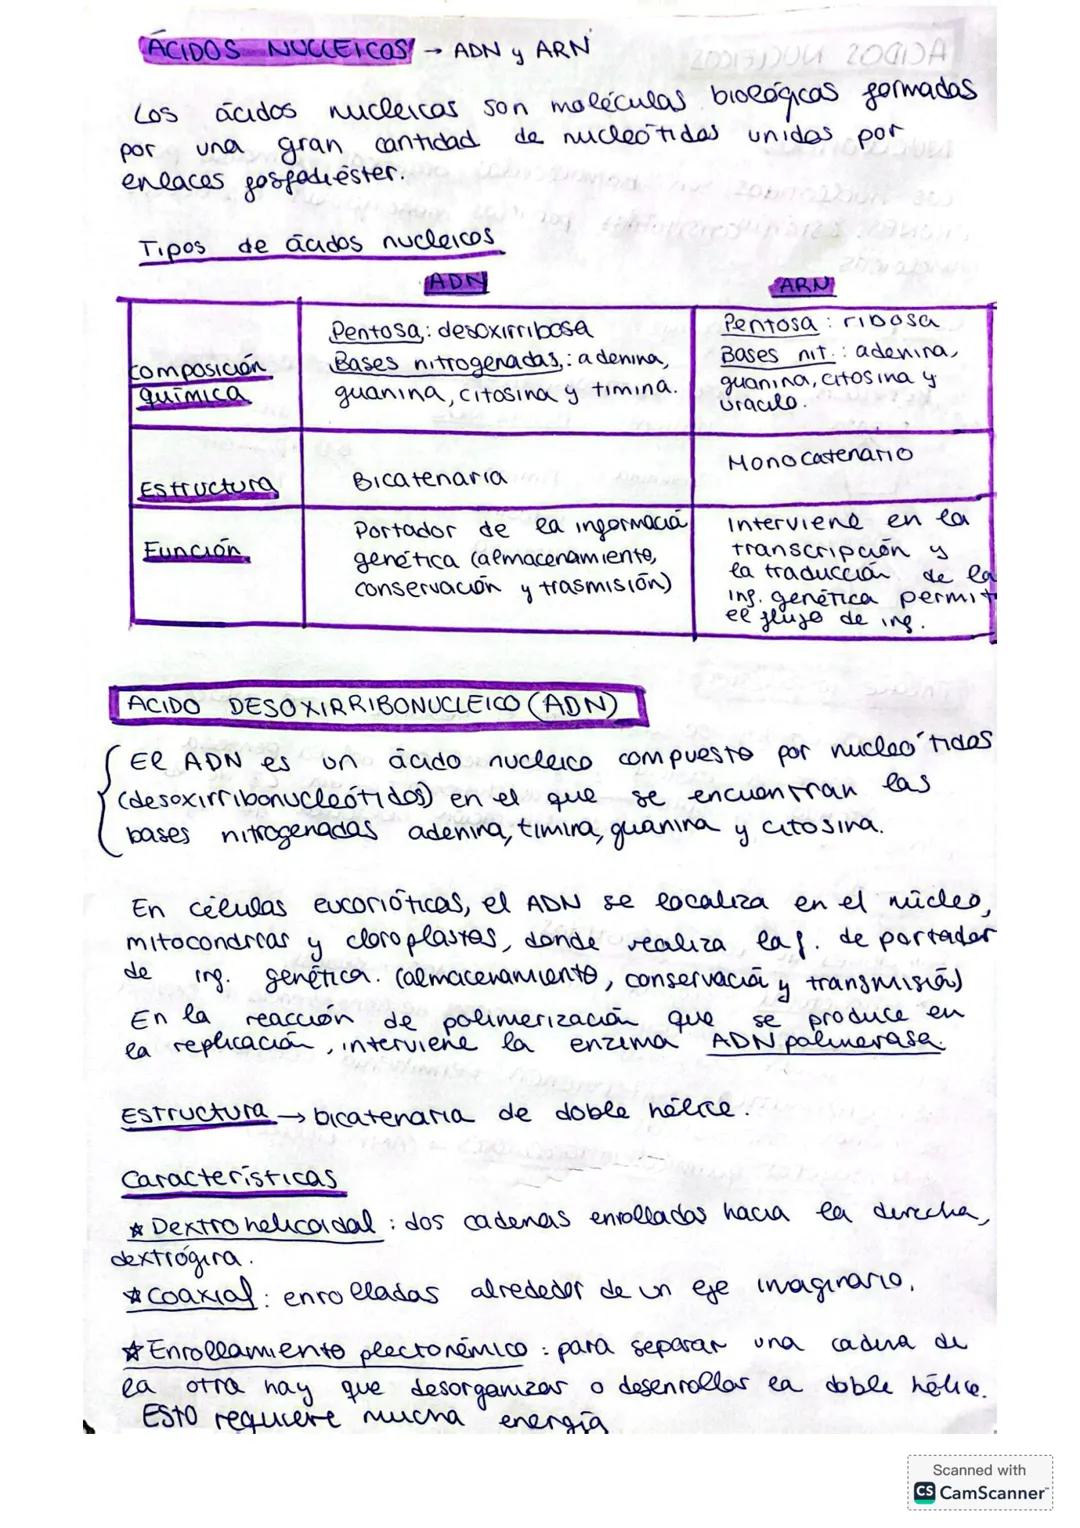 ÁCIDOS NUCLEICOS → ADN y ARN
Los ácidos nucleicos son moléculas biológicas formadas
por una gran cantidad de nucleótidos unidos por
enlaces fosfodiéster.
Tipos de ácidos nucleicos
ADN
ARN
Composición química
Pentosa: desoxirribosa
Bases nitrogenadas: adenina,
guanina, citosina y timina.
Pentosa: ribosa
Bases nit.: adenina,
guanina, citosina y
uracilo.
Estructura
Bicatenaria
Monocatenario
Función
Portador de la informació
genética (almacenamiento,
conservación y trasmisión)
Interviene en la
transcripción y
la traducción de la
inf. genética permit
el flujo de inf.
ACIDO DESOXIRRIBONUCLEICO (ADN)
El ADN es un ácido nucleico compuesto por nucleótidos
(desoxirribonucleótidos) en el que se encuentran las
bases nitrogenadas adenina, timina, guanina y citosina.
En células eucarióticas, el ADN se localiza en el núcleo,
mitocondrias y cloroplastos, donde realiza la f. de portador
de inf. genética. (almacenamiento, conservació y transmisió)
En la reacción de polimerización que se produce en
la replicación, interviene la enzima ADN polimerasa.
Estructura → bicatenaria de doble hélice.
Características
☆ Dextrohelicoidal: dos cadenas enrolladas hacia la derecha,
dextrógira.
☆ Coaxial: enrolladas alrededor de un eje imaginario.
☆ Enrollamiento plectonémico: para separar una cadena de
la otra hay que desorganizar o desenrollar la doble hélice.
Esto requiere mucha energía
Scanned with
CS CamScanner